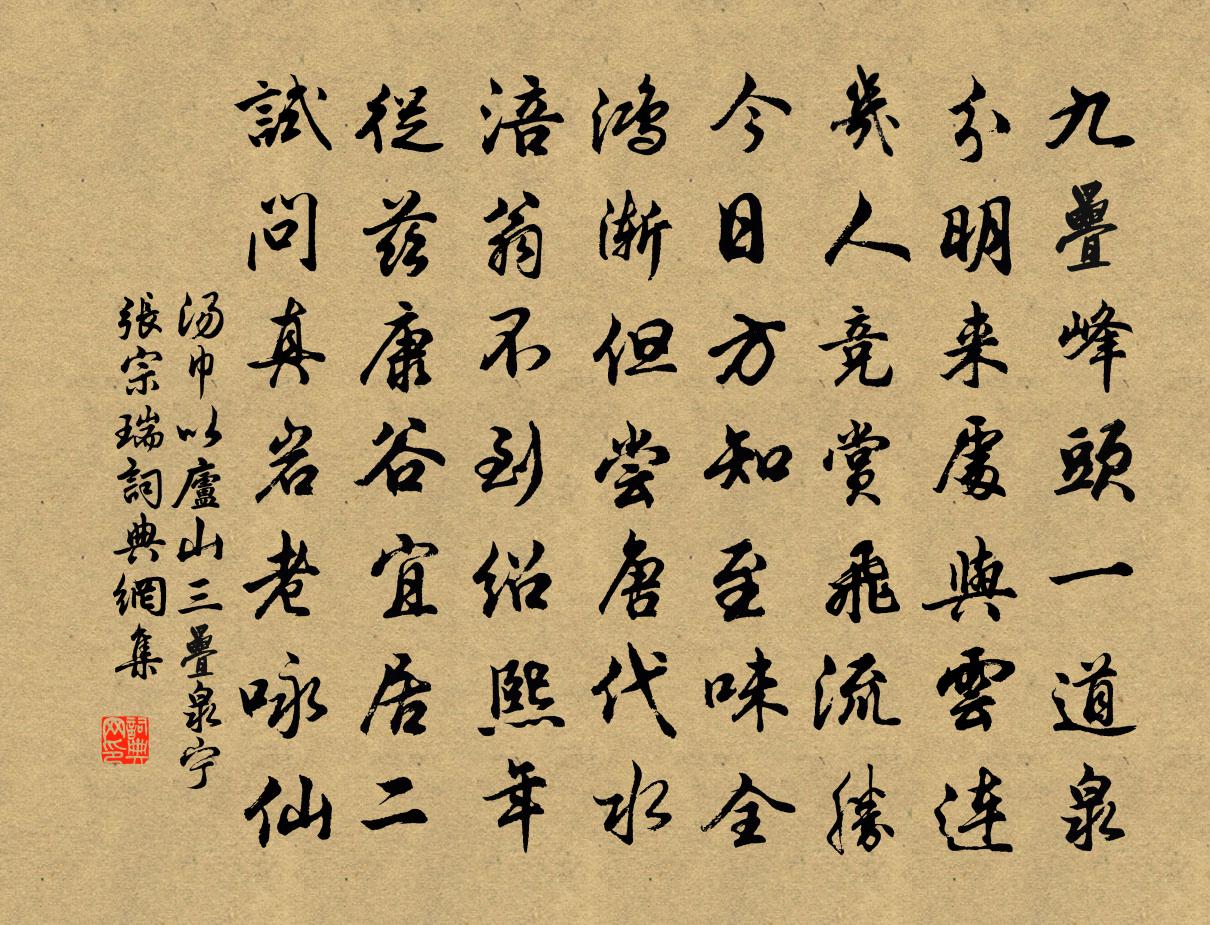 九疊峰頭一道泉
分明来處與雲連
幾人竞賞飛流勝
今日方知至味全
鴻漸但尝唐代水
涪翁不到绍熙年
從兹康谷宜居二
試問真岩老咏仙
汤巾以廬山三疊泉宁
張宗瑞詞典網集
詞典网印